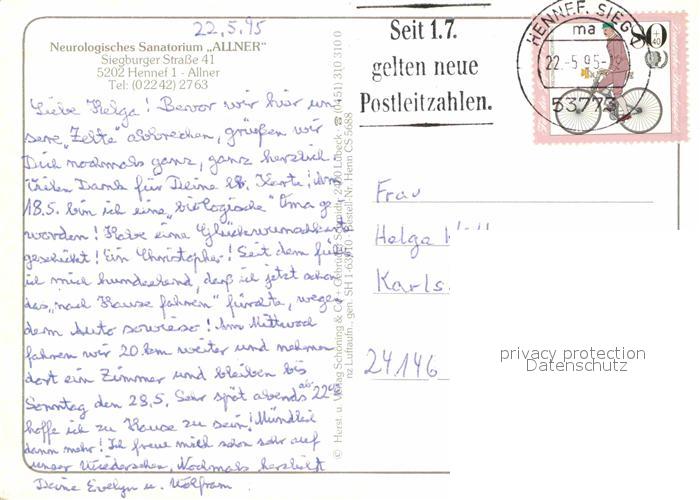 22.5.95
Neurologisches Sanatorium „ALLNER"
Siegburger Straße 41
5202 Hennef 1 - Allner
Tel: (02242) 2763
Liebe Helga! Bevor wir hier un
sere „Zelte" abbrechen, grüßen wir
Dich nochmals ganz, ganz herzlich.
Vielen Dank für Deine lb. Karte! Am
18.5. bin ich eine „biologische" Oma ge
worden! Habe eine Glückwunschkarte
geschickt! Ein Christopher! Seit dem fühl
ich mich hundeelend, daß ich jetzt schon
das „nach Hause fahren" fürchte, wegen
dem Auto sowieso! Am Mittwoch
fahren wir 20 km weiter und nehmen
dort ein Zimmer und bleiben bis
Sonntag den 28.5. Sehr spät abends ab 22 00
hoffe ich zu Hause zu sein! Mündlich
dann mehr! Ich freue mich schon sehr auf
unser Wiedersehen. Nochmals herzlichst
Deine Evelyn u. Wolfram
© Herst. u. Verlag Schöning & Co + Gebrüder Schmidt, 2400 Lübeck ☎ (04 51) 310 310 0
nz Luftaufn., gen. SH 1-63/610 Bestell-Nr. Henn CS 5688
Seit 1.7.
gelten neue
Postleitzahlen.
HENNEF, SIEG 1
ma
22.-5.95-
53773
80
+40
Frau
Helga
Karls
24146
privacy protection
Datenschutz